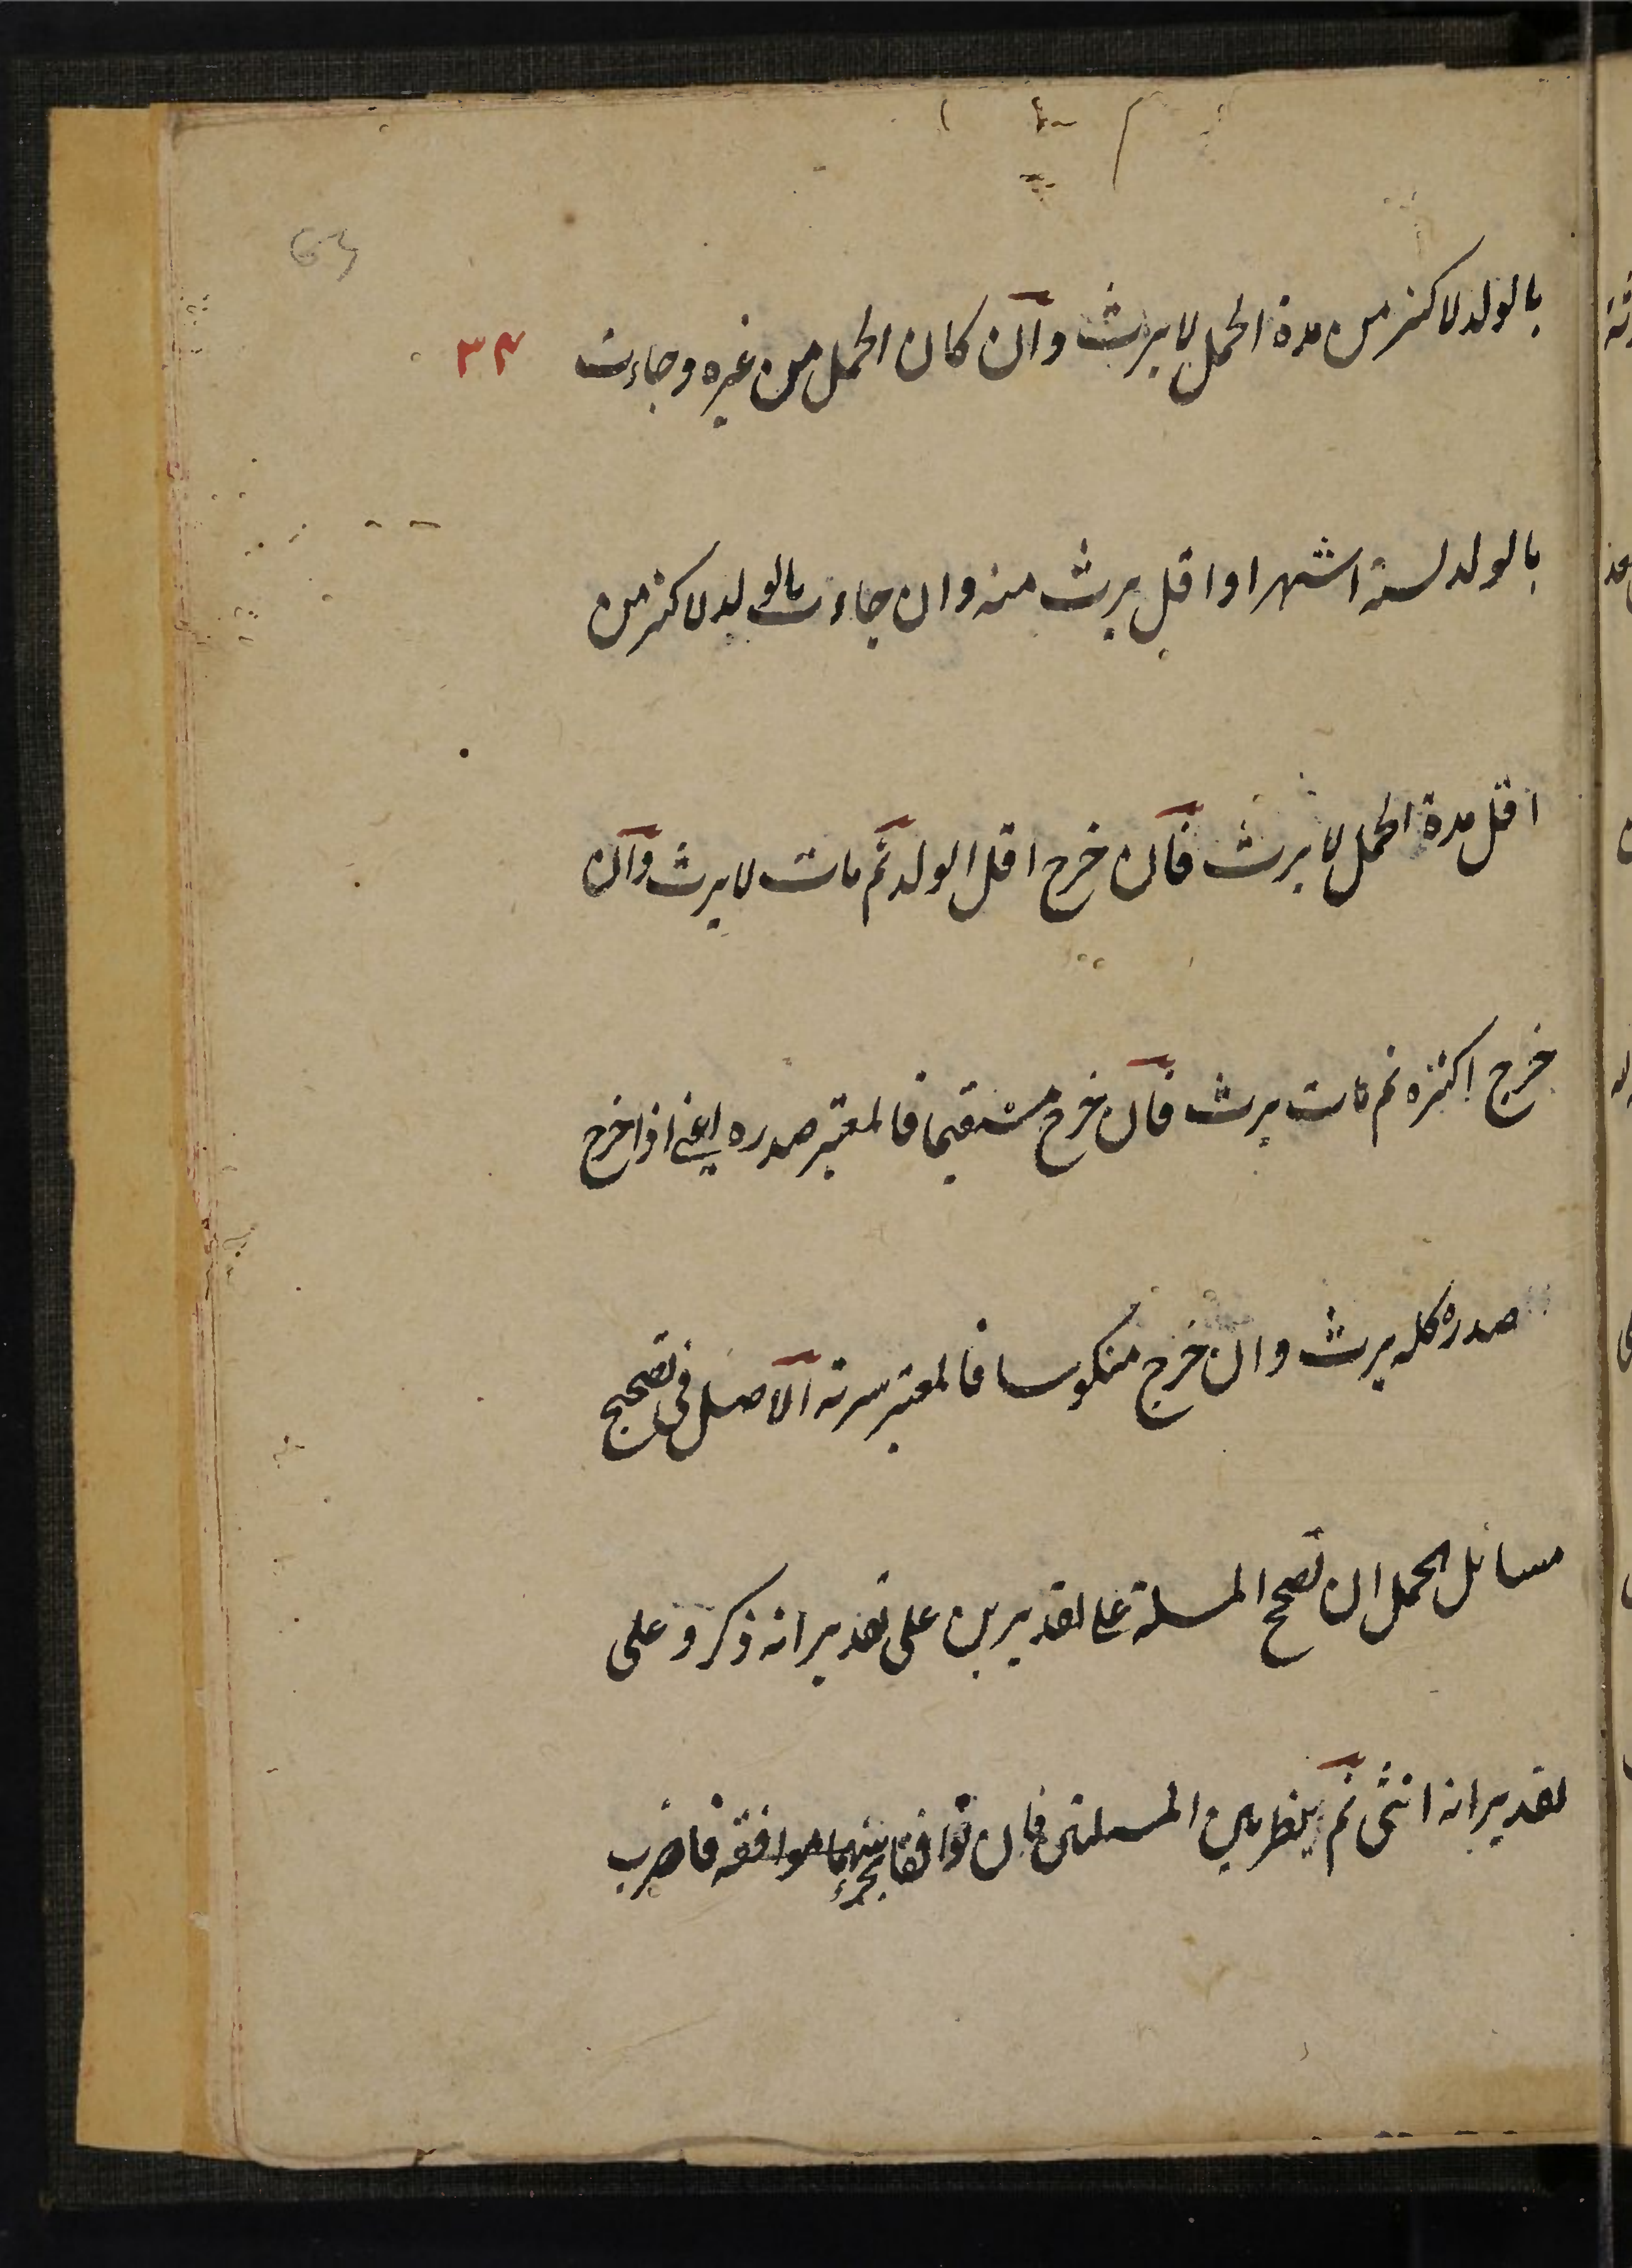 63
بالولد لاكثر من مدة الحمل لا يرث وان كان الحمل من غيره وجاءت
٣٤
بالولد لستة اشهر او اقل يرث منه وان جاءت بالولد لاكثر من
اقل مدة الحمل لا يرث فان خرج اقل الولد ثم مات لا يرث وان
خرج اكثره ثم مات يرث فان خرج مستقيما فالمعتبر صدره اعنى اذا خرج
صدره كله يرث وان خرج منكوسا فالمعتبر سرته الاصل فى تصحيح
مسائل الحمل ان تصحح المسئلة على تقديرين على تقدير انه ذكر وعلى
تقدير انه انثى ثم ينظر بين المسئلتين فان توافقا بجزء فاضرب